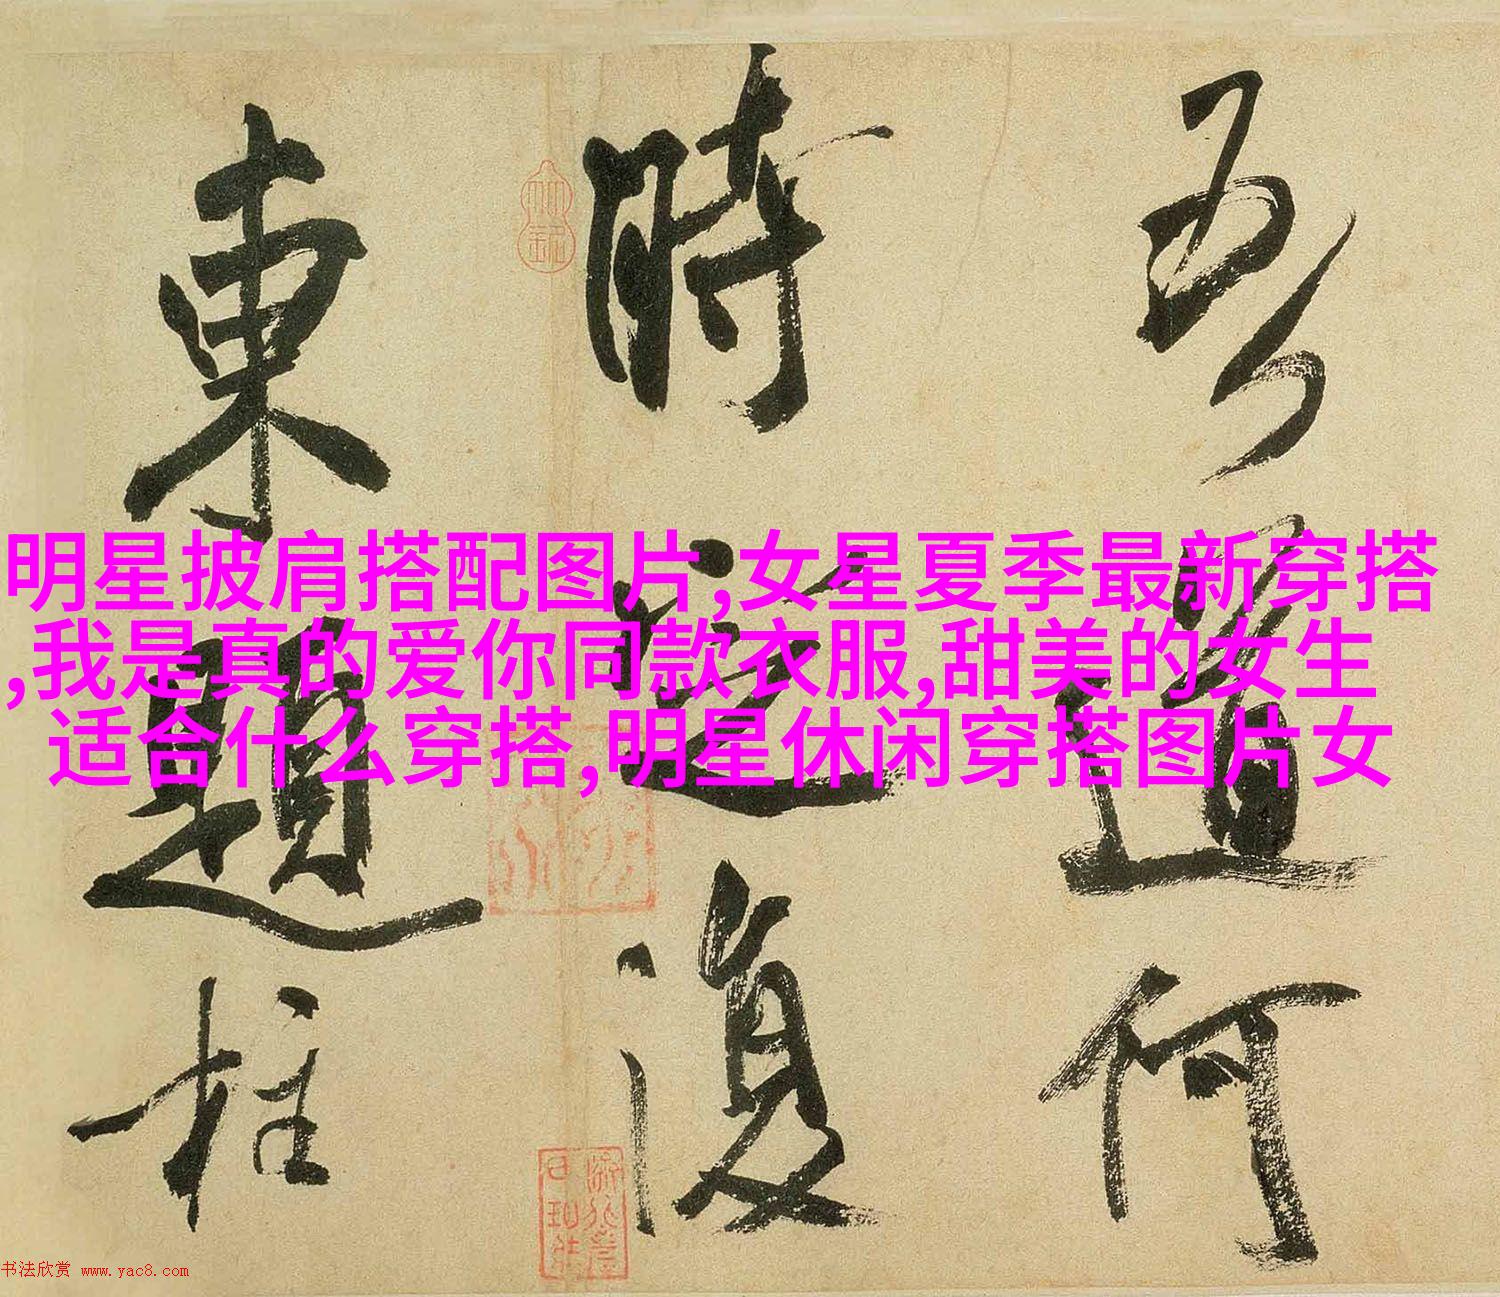 吾道何
時定復
東題柱
明星披肩搭配图片,女星夏季最新穿搭
,我是真的爱你同款衣服,甜美的女生
适合什么穿搭,明星休闲穿搭图片女
书法欣赏 www.yac8.com